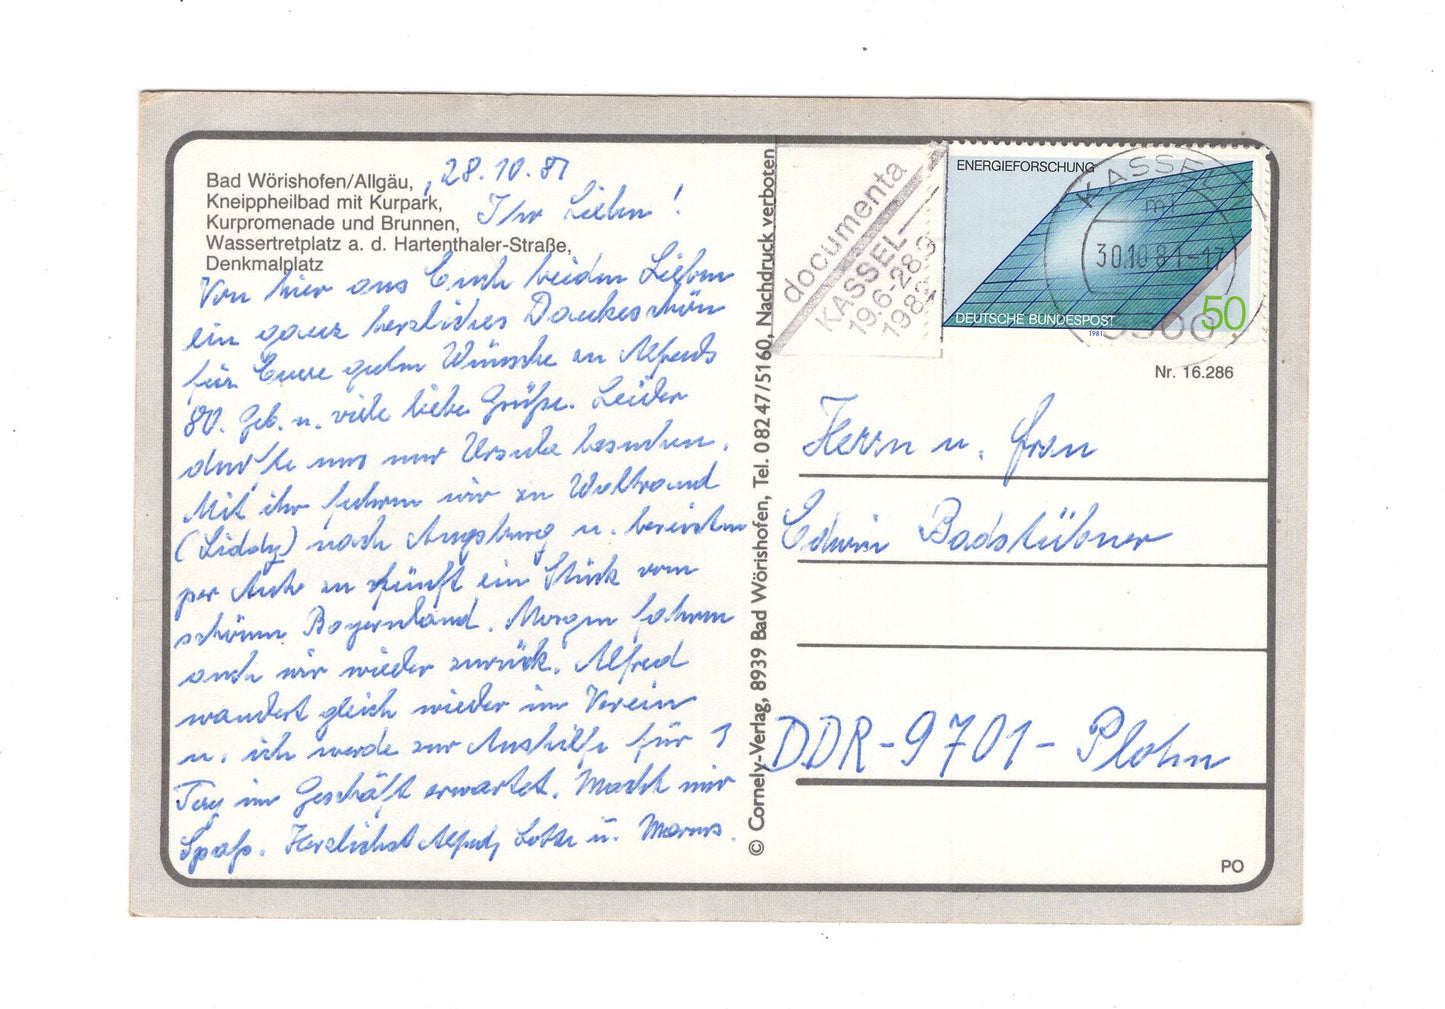 Bad Wörishofen/Allgäu,
Kneippheilbad mit Kurpark,
Kurpromenade und Brunnen,
Wassertretplatz a. d. Hartenthaler-Straße,
Denkmalplatz
, 28.10.81
Ihr Lieben!
Von hier aus Euch beiden Lieben
ein ganz herzliches Dankeschön
für Euere guten Wünsche zu Alfreds
80. Geb. u. viele liebe Grüße. Leider
durfte uns nur Ursula besuchen.
Mit ihr fuhren wir zu Waltraud
(Liddy) nach Augsburg u. bereisten
per Auto zu fünft ein Stück vom
schönen Bayernland. Morgen fahren
auch wir wieder zurück. Alfred
wandert gleich wieder im Verein
u. ich werde zur Aushilfe für 1
Tag im Geschäft erwartet. Macht mir
Spaß. Herzlichst Alfred, Lotte u.
© Cornely-Verlag, 8939 Bad Wörishofen, Tel. 08247/5160, Nachdruck verboten
documenta
KASSEL
19.6-28.9
1982
ENERGIEFORSCHUNG
DEUTSCHE BUNDESPOST
1981
50
KASSEL
mi
30.10.81-17
3500
Nr. 16.286
Herrn u. Frau
Edwin Badstübner
DDR-9701-Plohn
PO